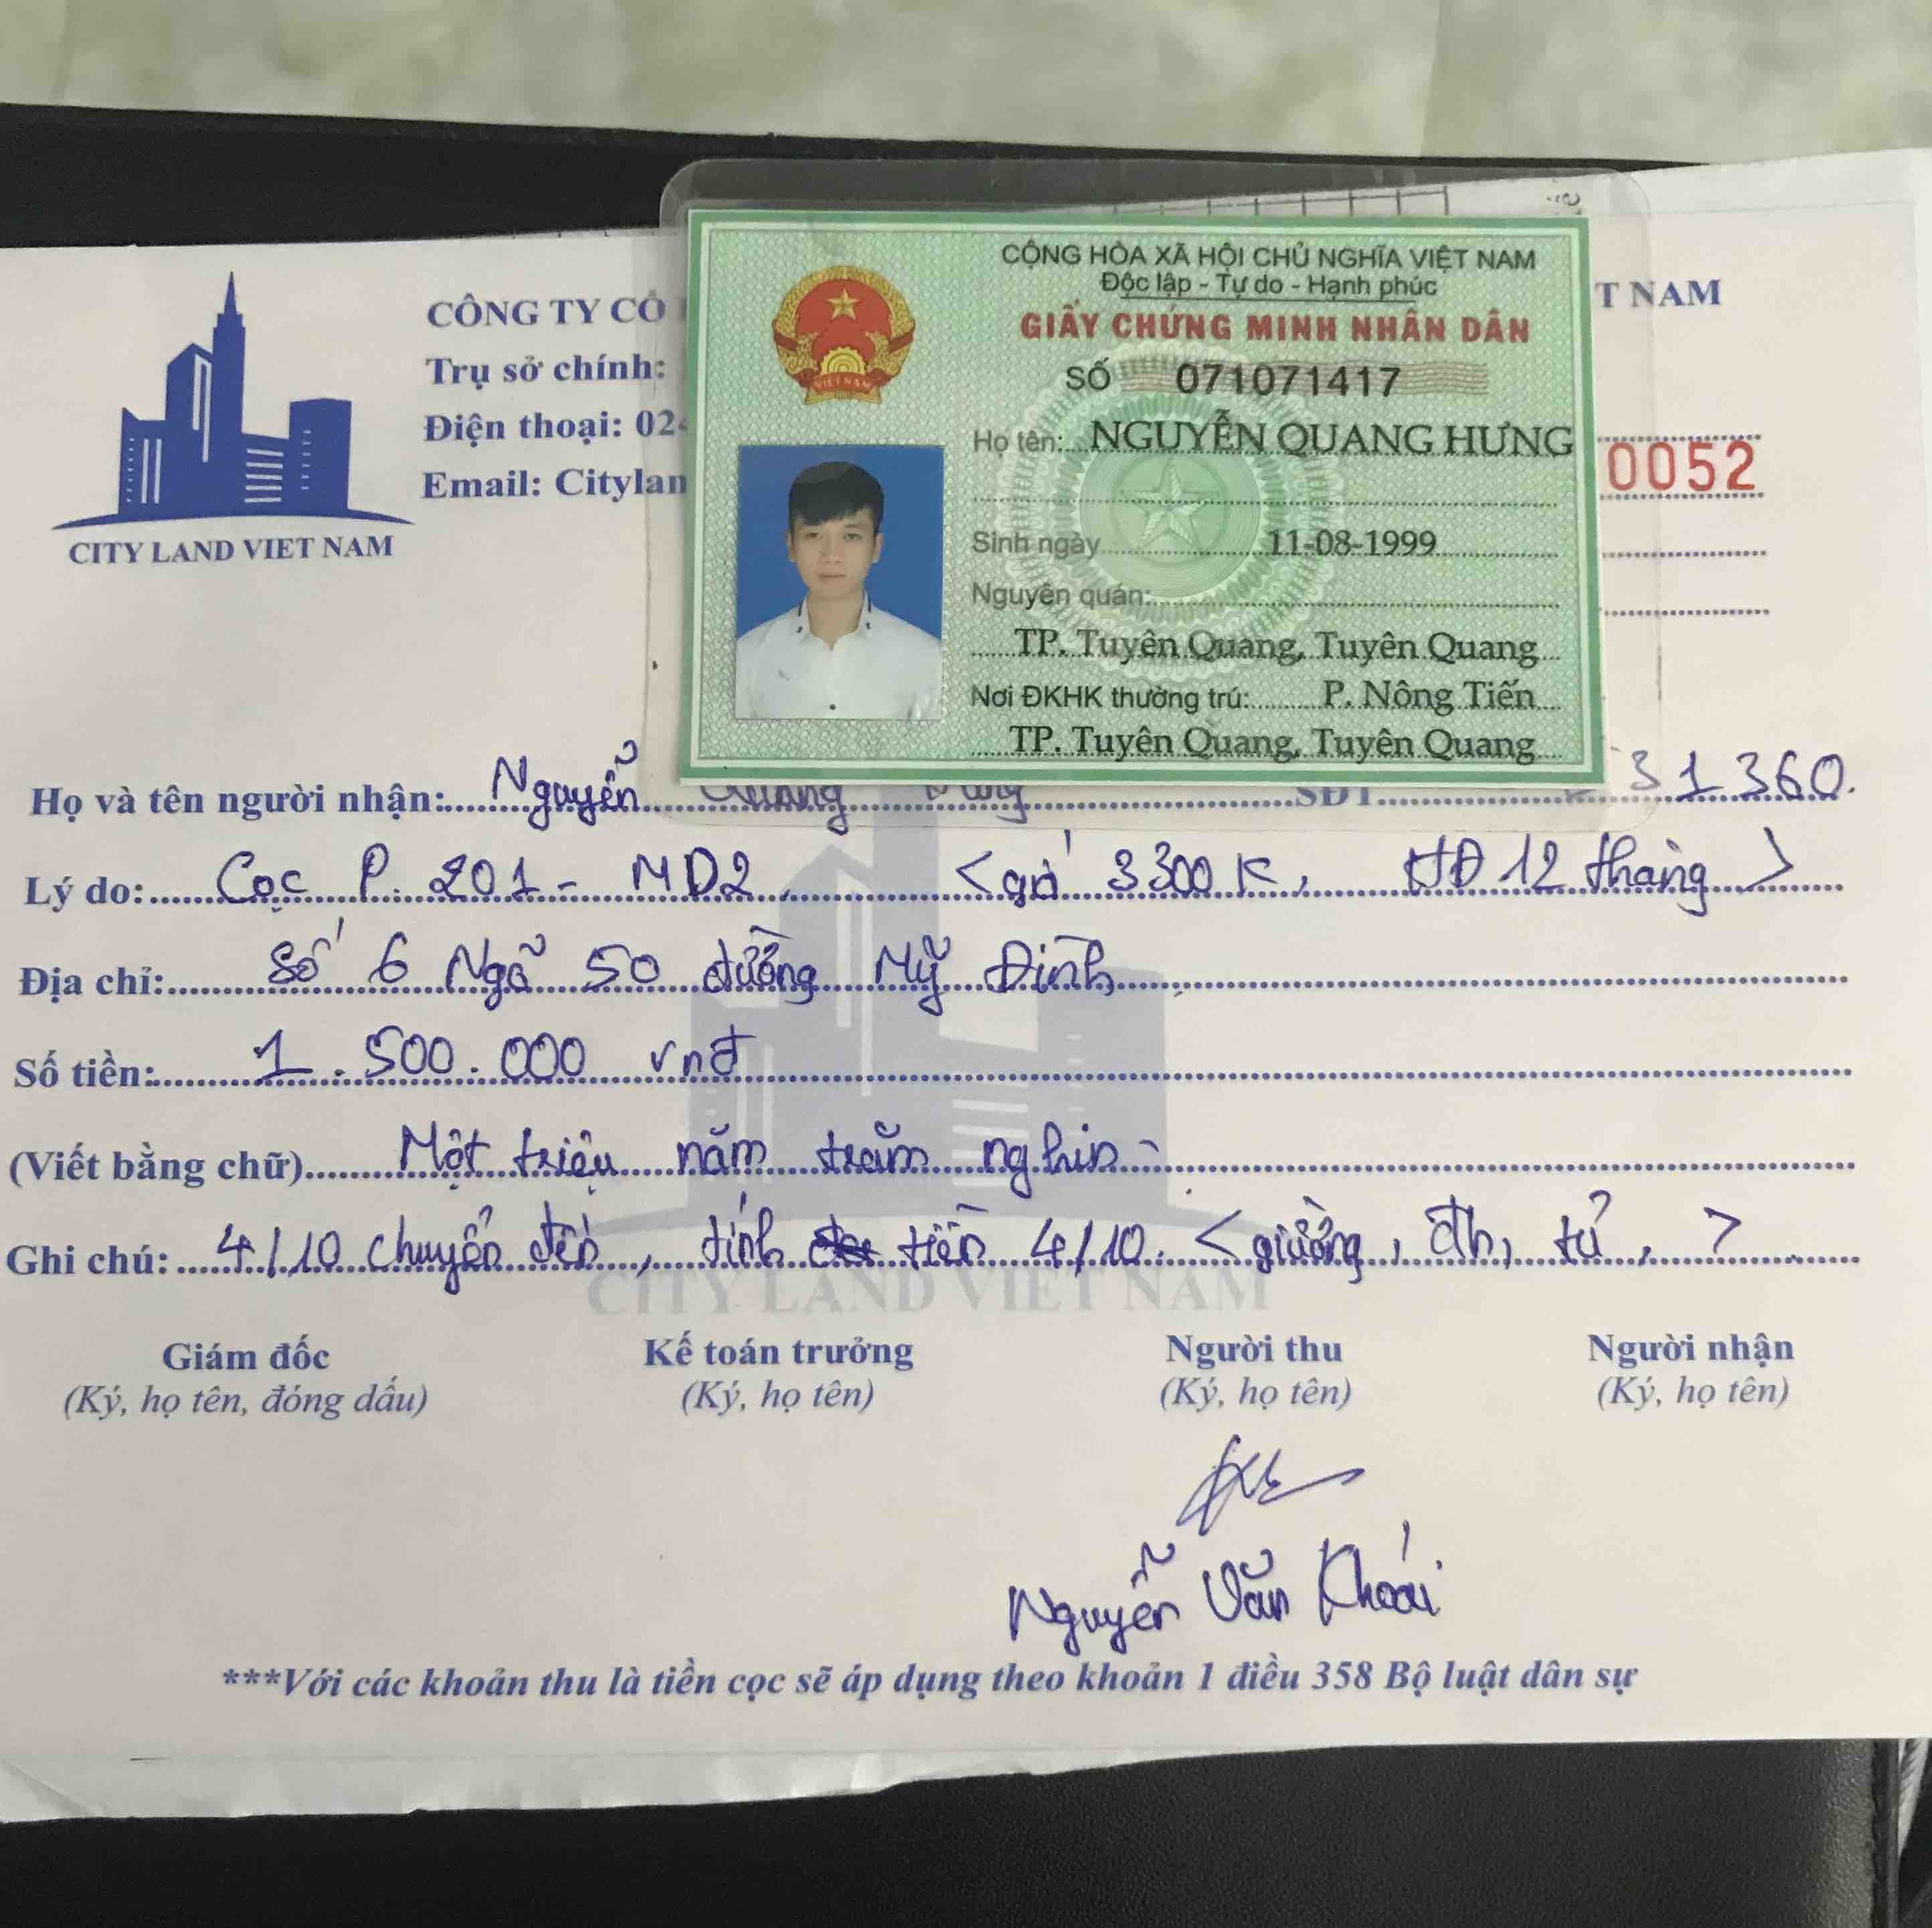 CITY LAND VIET NAM
CÔNG TY CỔ
T NAM
Trụ sở chính:
Điện thoại: 02
Email: Citylan
0052
CỘNG HÒA XÃ HỘI CHỦ NGHĨA VIỆT NAM
Độc lập - Tự do - Hạnh phúc
GIẤY CHỨNG MINH NHÂN DÂN
SỐ 071071417
Họ tên: NGUYỄN QUANG HƯNG
Sinh ngày 11-08-1999
Nguyên quán:
TP. Tuyên Quang, Tuyên Quang
Nơi ĐKHK thường trú: P. Nông Tiến
TP. Tuyên Quang, Tuyên Quang
VIỆT NAM
Họ và tên người nhận: Nguyễn Quang SĐT 31360.
Lý do: Cọc P. 201 - MD2, <giá 3300K, HĐ 12 tháng>
Địa chỉ: Số 6 Ngõ 50 đường Mỹ Đình
Số tiền: 1.500.000 vnđ
(Viết bằng chữ) Một triệu năm trăm nghìn
Ghi chú: 4/10 chuyển đến, tính tiền 4/10. <giường, đh, tủ, >
CITY LAND VIET NAM
Giám đốc Kế toán trưởng Người thu Người nhận
(Ký, họ tên, đóng dấu) (Ký, họ tên) (Ký, họ tên) (Ký, họ tên)
Nguyễn Văn Khoái
***Với các khoản thu là tiền cọc sẽ áp dụng theo khoản 1 điều 358 Bộ luật dân sự